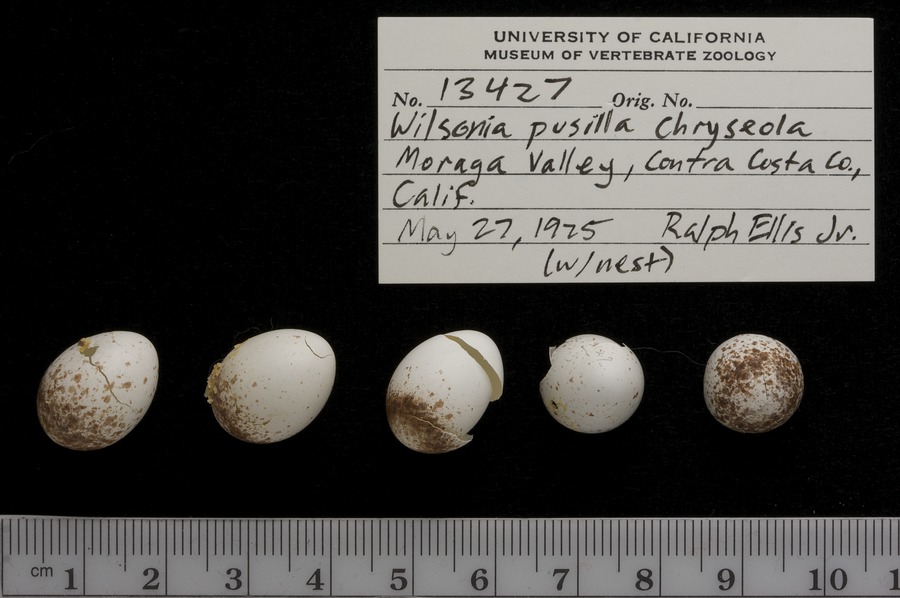 UNIVERSITY OF CALIFORNIA
MUSEUM OF VERTEBRATE ZOOLOGY
No. 13427 Orig. No.
Wilsonia pusilla chryseola
Moraga Valley, Contra Costa Co.,
Calif.
May 27, 1925 Ralph Ellis Jr.
(w/nest)
cm 1 2 3 4 5 6 7 8 9 10 1